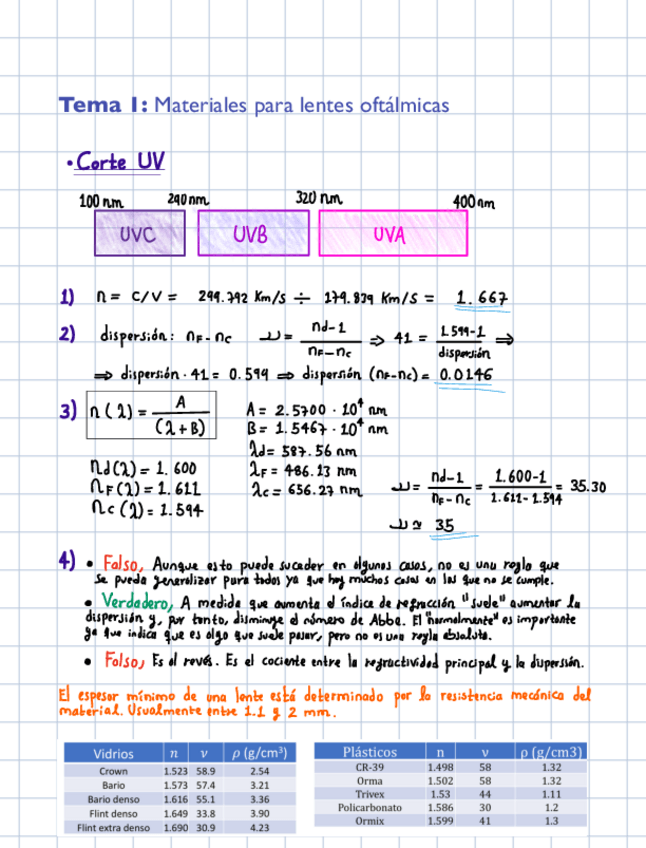 Tema 1: Materiales para lentes oftálmicas
• Corte UV
100 nm 290 nm 320 nm 400 nm
UVC UVB UVA
1) n = c/v = 299.792 Km/s ÷ 179.839 Km/s = 1.667
2) dispersión: nF - nc ν = nd-1 / nF-nc ⇒ 41 = 1.599-1 / dispersión ⇒
⇒ dispersión · 41 = 0.599 ⇒ dispersión (nF-nc) = 0.0146
3) n(λ) = A / (λ+B)
A = 2.5700 · 10⁴ nm
B = 1.5467 · 10⁴ nm
λd = 587.56 nm
λF = 486.13 nm
λc = 656.27 nm
nd(λ) = 1.600
nF(λ) = 1.611
nc(λ) = 1.594
ν = nd-1 / nF-nc = 1.600-1 / 1.611-1.594 = 35.30
ν ≃ 35
4) • Falso, Aunque esto puede suceder en algunos casos, no es una regla que
se pueda generalizar para todos ya que hay muchos casos en los que no se cumple.
• Verdadero, A medida que aumenta el índice de refracción "suele" aumentar la
dispersión y, por tanto, disminuye el número de Abbe. El "normalmente" es importante
ya que indica que es algo que suele pasar, pero no es una regla absoluta.
• Falso, Es al revés. Es el cociente entre la refractividad principal y la dispersión.
El espesor mínimo de una lente está determinado por la resistencia mecánica del
material. Usualmente entre 1.1 y 2 mm.
Vidrios n ν ρ (g/cm³)
Crown 1.523 58.9 2.54
Bario 1.573 57.4 3.21
Bario denso 1.616 55.1 3.36
Flint denso 1.649 33.8 3.90
Flint extra denso 1.690 30.9 4.23
Plásticos n ν ρ (g/cm3)
CR-39 1.498 58 1.32
Orma 1.502 58 1.32
Trivex 1.53 44 1.11
Policarbonato 1.586 30 1.2
Ormix 1.599 41 1.3